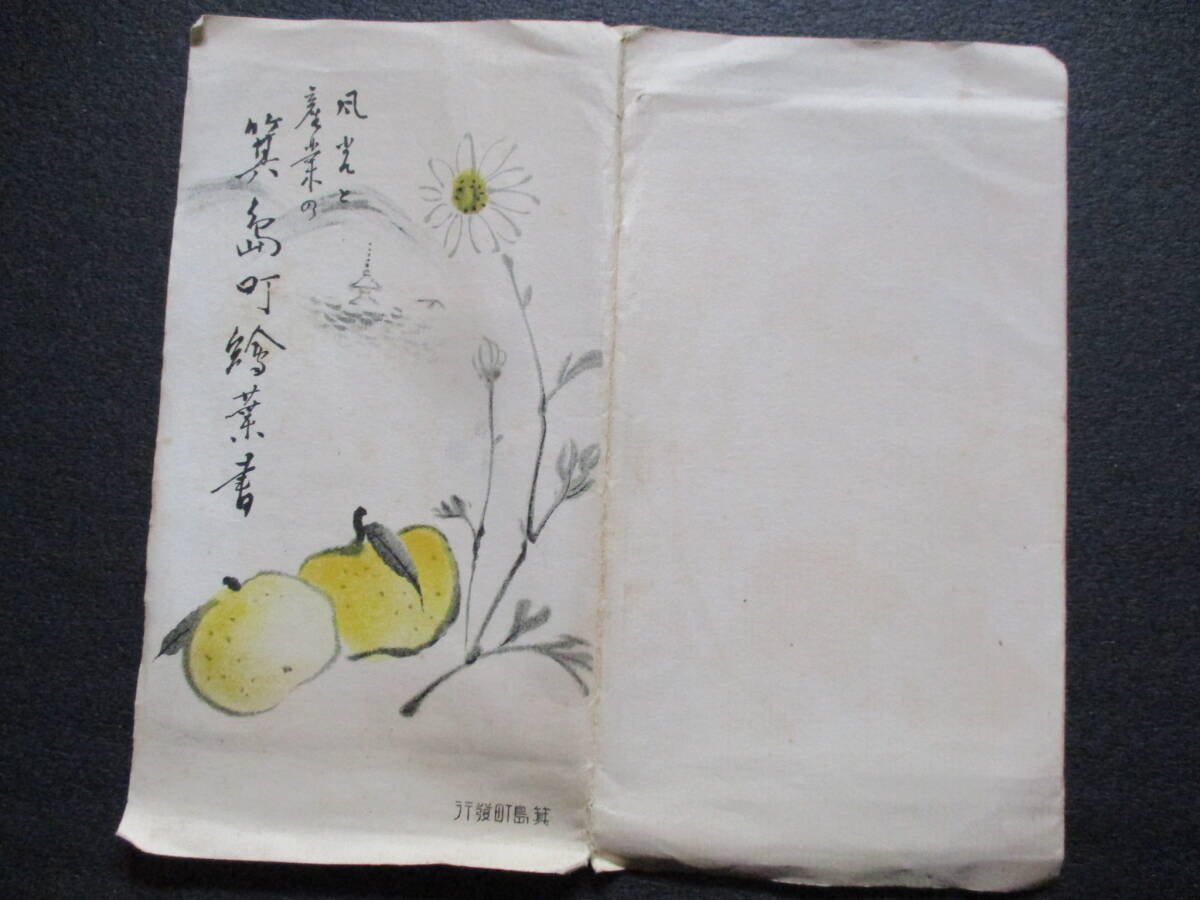 風光と
産業の
箕島町繪葉書
箕島町發行